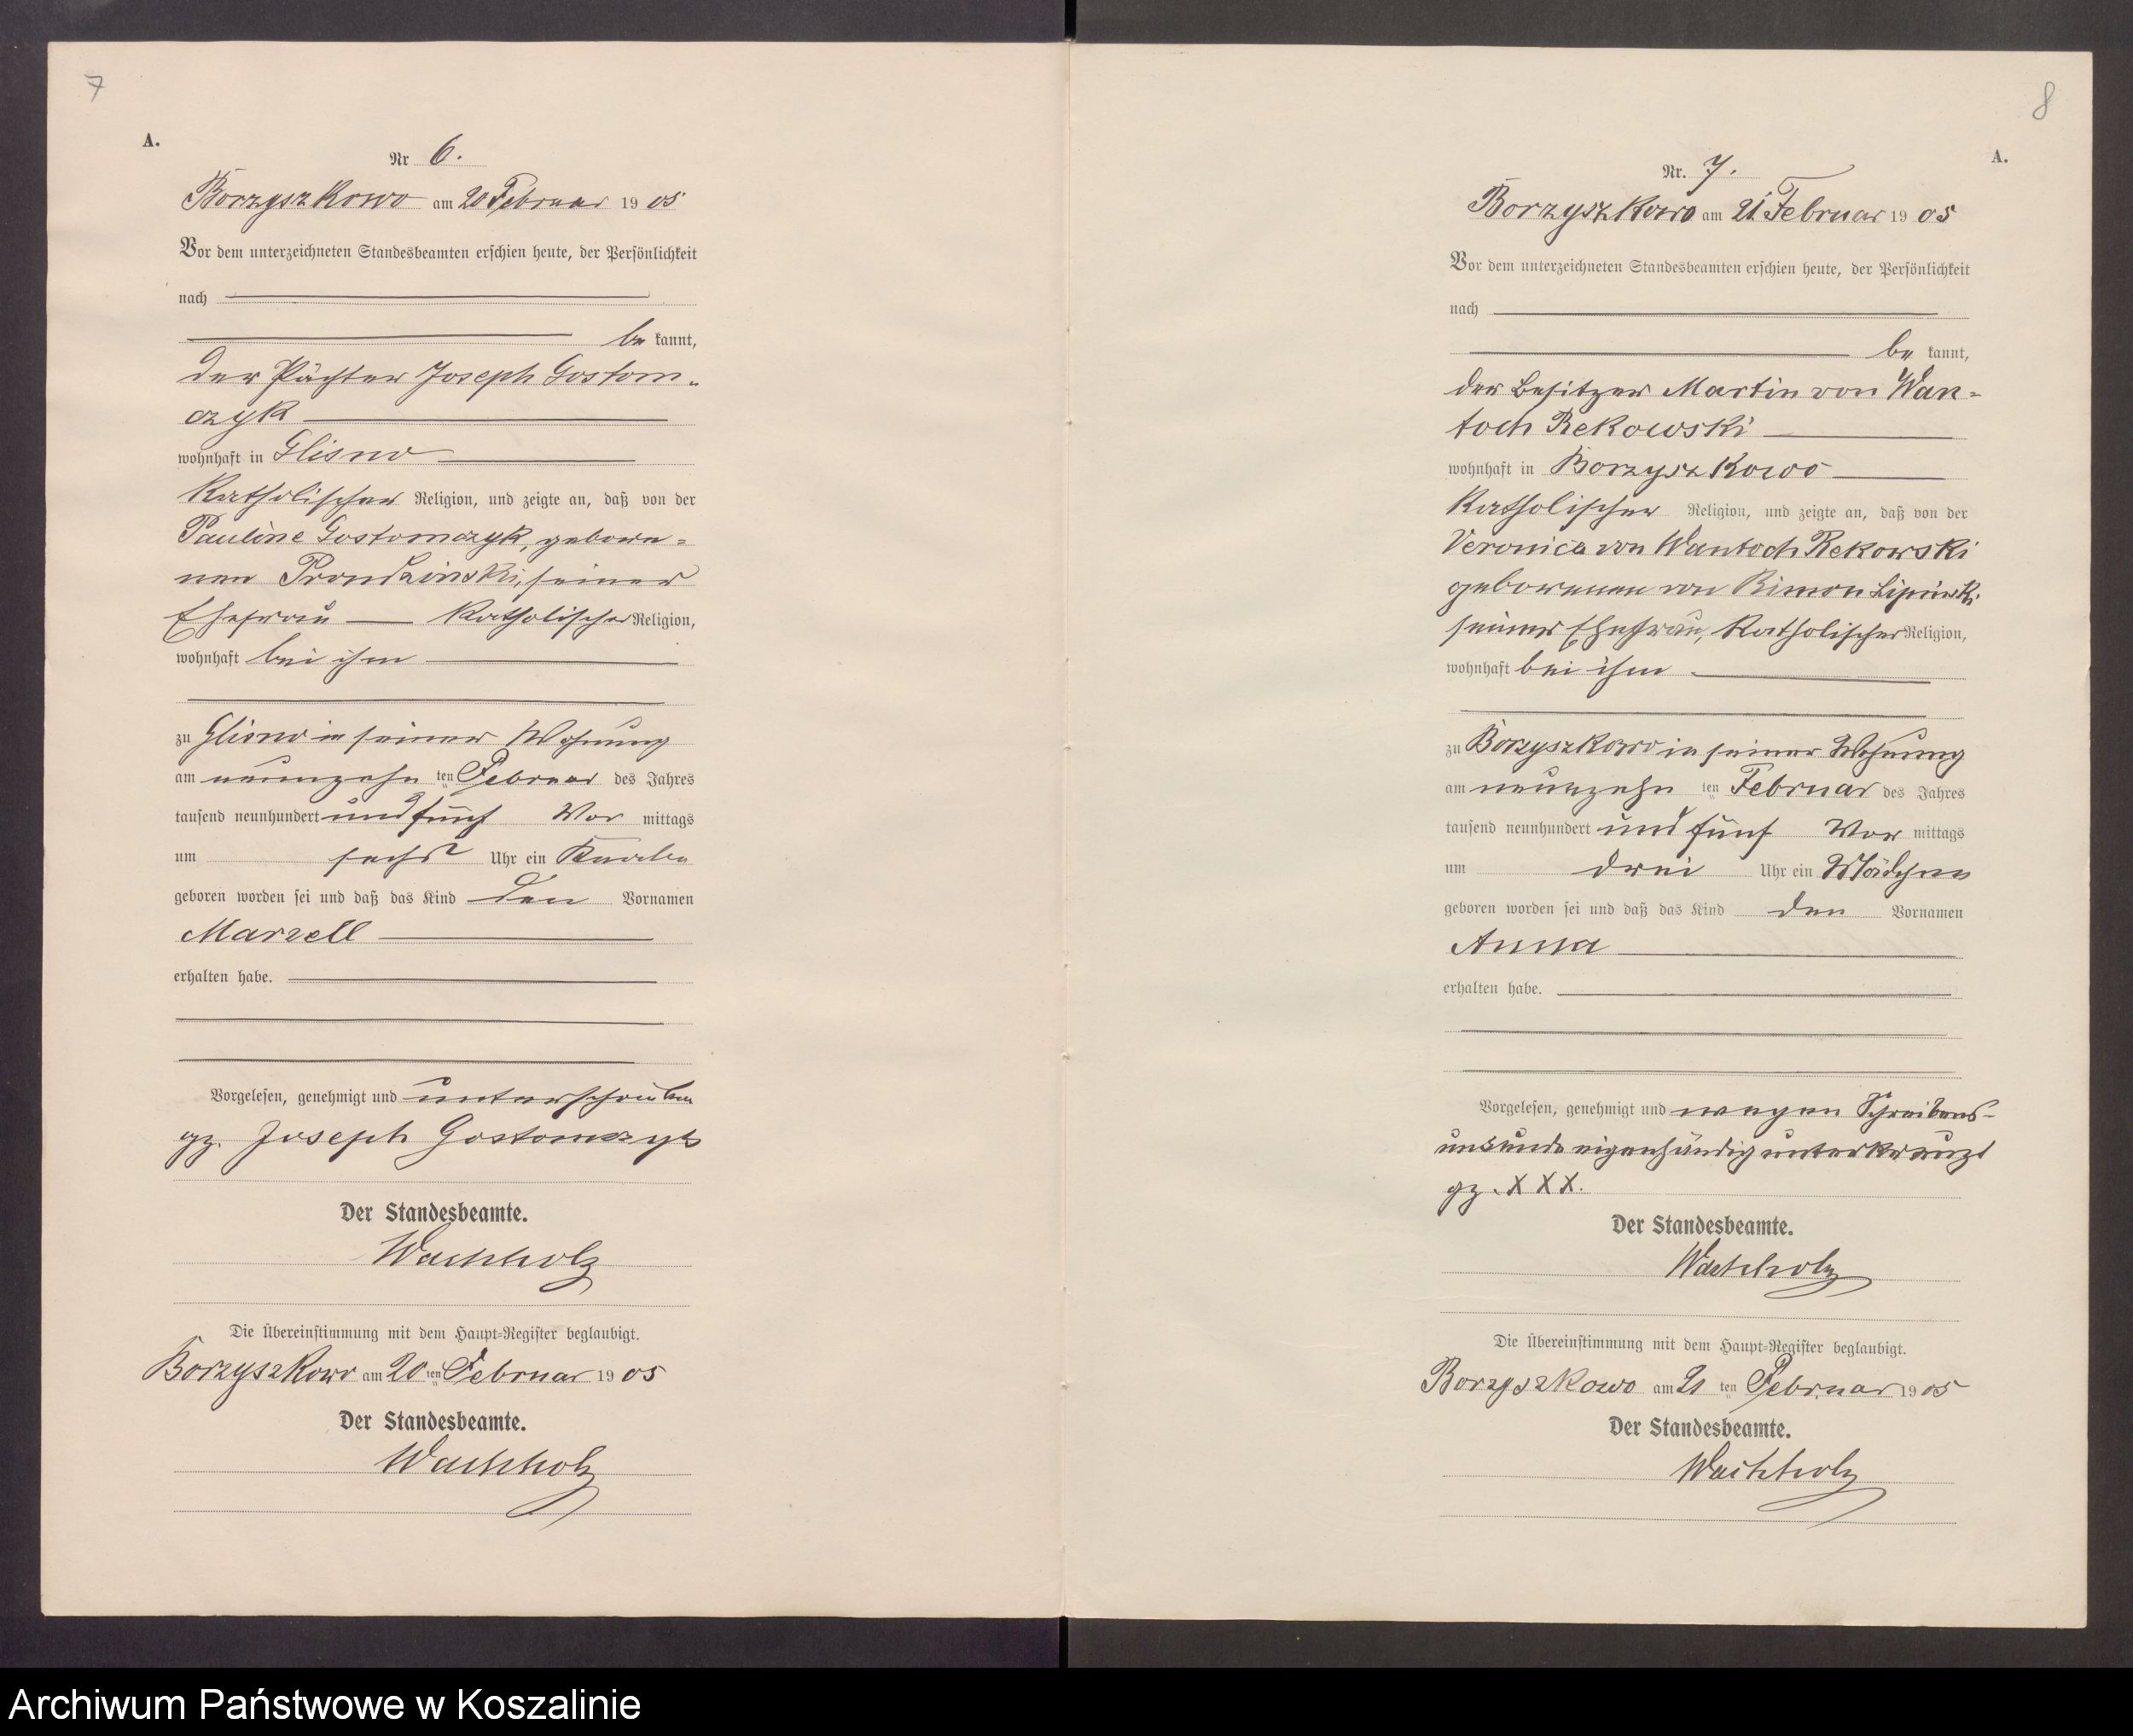 7
A.
Nr 6.
Borzyszkowo am 20 Februar 1905
Vor dem unterzeichneten Standesbeamten erschien heute, der Persönlichkeit
nach
be kannt,
der Pächter Joseph Gostom-
czyk
wohnhaft in Glisno
Katholischer Religion, und zeigte an, daß von der
Pauline Gostomczyk, gebore-
nen Prondzinski, seiner
Ehefrau Katholischer Religion,
wohnhaft bei ihm
zu Glisno in seiner Wohnung
am neunzehn ten Februar des Jahres
tausend neunhundert und fünf Vor mittags
um sechs Uhr ein Knabe
geboren worden sei und daß das Kind den Vornamen
Marzell
erhalten habe.
Vorgelesen, genehmigt und unterschrieben
gz. Joseph Gostomczyk
Der Standesbeamte.
Wachholz
Die Übereinstimmung mit dem Haupt-Register beglaubigt.
Borzyszkowo am 20 ten Februar 1905
Der Standesbeamte.
Wachholz
8
A.
Nr. 7.
Borzyszkowo am 21. Februar 1905
Vor dem unterzeichneten Standesbeamten erschien heute, der Persönlichkeit
nach
be kannt,
der Besitzer Martin von Wan-
toch Rekowski
wohnhaft in Borzyszkowo
Katholischer Religion, und zeigte an, daß von der
Veronica von Wantoch Rekowski
geborenen von Lipinski
seiner Ehefrau, Katholischer Religion,
wohnhaft bei ihm
zu Borzyszkowo in seiner Wohnung
am neunzehn ten Februar des Jahres
tausend neunhundert und fünf Vor mittags
um drei Uhr ein Mädchen
geboren worden sei und daß das Kind den Vornamen
Anna
erhalten habe.
Vorgelesen, genehmigt und wegen Schreibens-
unkunde eigenhändig unterkreuzt
gz. X X X.
Der Standesbeamte.
Wachholz
Die Übereinstimmung mit dem Haupt-Register beglaubigt.
Borzyszkowo am 21 ten Februar 1905
Der Standesbeamte.
Wachholz
Archiwum Państwowe w Koszalinie